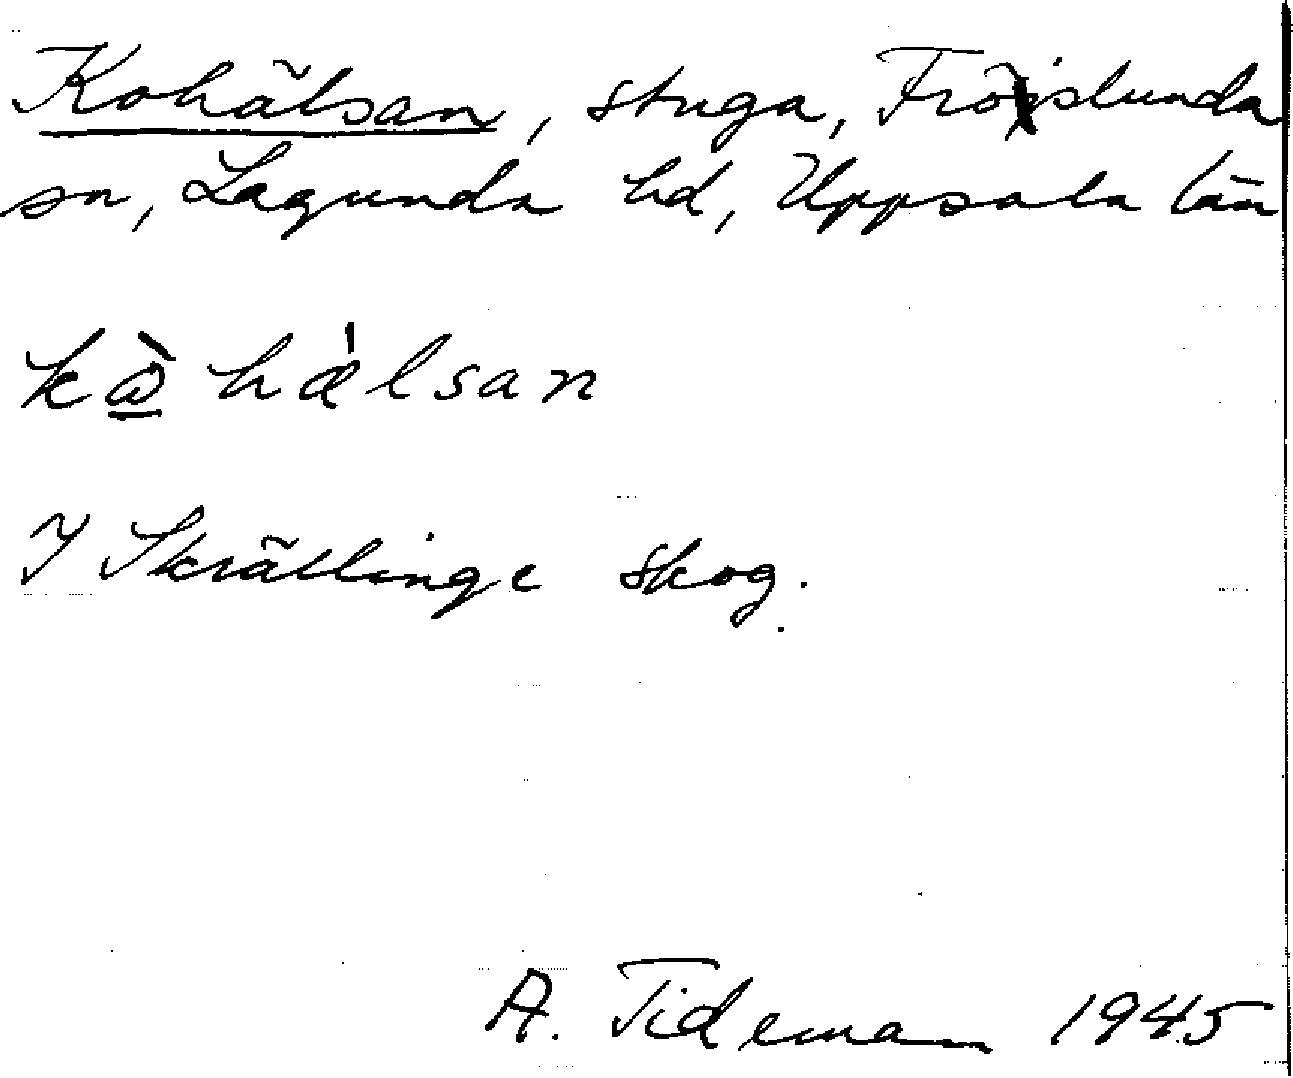 Kohälsan, stuga, Fröslunda
sn, Lagunda hd, Uppsala län
kò hä̀lsan
I Skrällinge skog.
A. Tideman 1945